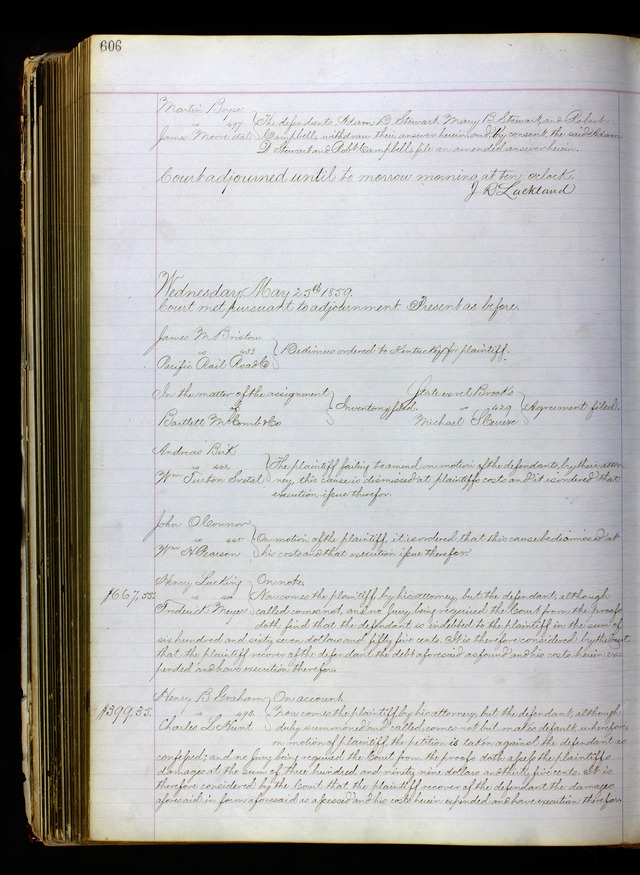 606
Martin Boyse
vs 477 } The defendants, Adam D. Stewart, Mary B. Stewart, and Robert
James Moore et al } Campbell, withdraw their answer herein, and by consent the said Adam
D Stewart and Robt Campbell, file an amended answer herein.
Court adjourned until to morrow morning at ten o'clock.
J. R. Lackland
Wednesday, May 25th 1859.
Court met pursuant to adjournment. Present as before.
James M Bristow
vs 433 } Dedimus ordered to Kentucky for plaintiff.
Pacific Rail Road Co
In the matter of the assignment
of } Inventory filed.
Bartlett McComb & Co
State ex rel Brooks
vs 429 } Agreement filed.
Michael
Andreas
vs 402 } The plaintiff failing to amend, on motion of the defendants, by their attor
Wm et al } ney, this cause is dismissed at plaintiffs costs and it is ordered that
execution issue therefor.
John O'Connor
vs } On motion of the plaintiff, it is ordered that this cause be dismissed at
Wm H } his costs and that execution issue therefor.
Henry } On note.
$667,55. vs } Now comes the plaintiff by his attorney, but the defendant, although
Frederick Meyer } called comes not, and no Jury being required the Court from the proofs
doth find that the defendant is indebted to the plaintiff in the sum of
six hundred and sixty seven dollars and fifty five cents. It is therefore considered by the Court
that the plaintiff recover of the defendant the debt aforesaid as found and his costs herein ex
pended and have execution therefor.
Henry B. Graham } On account.
$399.35. vs 495 } Now comes the plaintiff by his attorney, but the defendant, although
Charles L Hunt } duly summoned and called, comes not but makes default, wherefore,
on motion of plaintiff, the petition is taken against the defendant as
confessed; and no Jury being required the Court from the proofs doth assess the plaintiffs
damages at the sum of three hundred and ninety nine dollars and thirty five cents. It is
therefore considered by the Court that the plaintiff recover of the defendant the damages
aforesaid in form aforesaid as assessed and his costs herein expended and have execution therefor